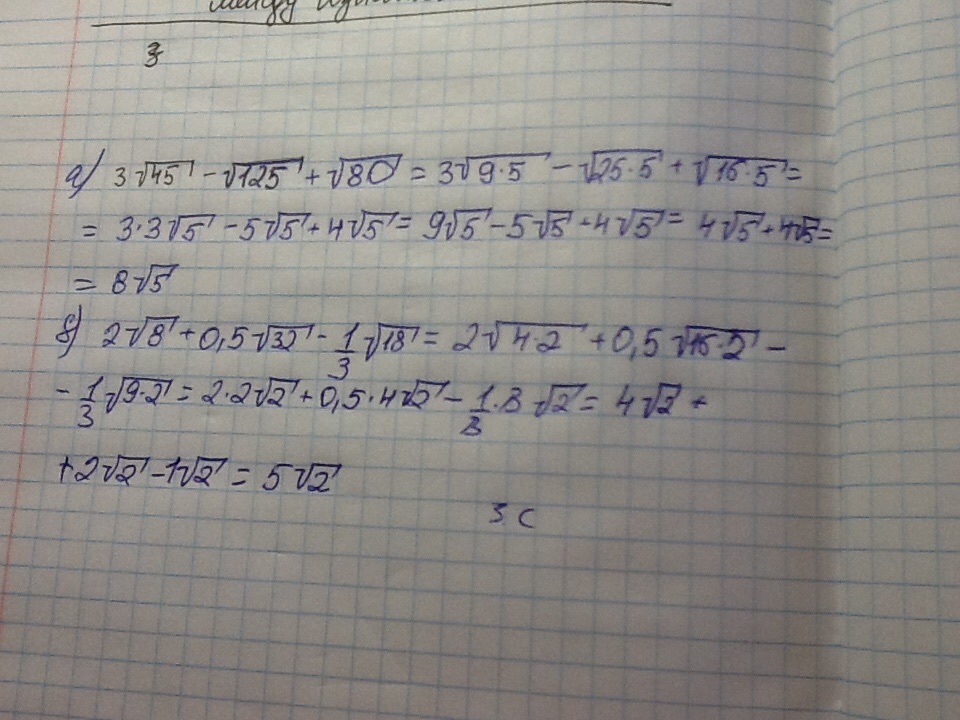 между
3
а) 3√45 - √125 + √80 = 3√9·5 - √25·5 + √16·5 =
= 3·3√5 - 5√5 + 4√5 = 9√5 - 5√5 + 4√5 = 4√5 + 4√5 =
= 8√5
б) 2√8 + 0,5√32 - 1/3√18 = 2√4·2 + 0,5√16·2 -
- 1/3√9·2 = 2·2√2 + 0,5·4√2 - 1/3·3√2 = 4√2 +
+ 2√2 - 1√2 = 5√2
3 С